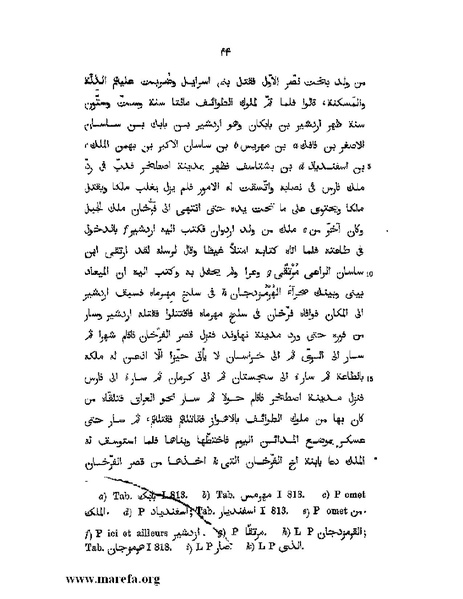 ٤٤
من ولد بخت نصّر الاوّل فقتل بنى اسرائيل وضُربت عليهم الذلّة
والمسكنة، قالوا فلما تمّ لملوك الطوائف مائتا سنة وستّ وستّون
سنة ظهر اردشير بن بابكان وهو اردشير بن بابك بن ساسان
الاصغر بن فافك a بن مهريس b بن ساسان الاكبر بن بهمن الملك c
بن اسفندياذ d بن بشتاسف فظهر بمدينة اصطخر فدبّ فى ردّ
ملك فارس فى نصابه واتّسقت له الامور فلم يزل يغلب ملكا ويقتل
ملكا ويحتوى على ما تحت يده حتى انتهى الى فرّخان ملك الجبل
وكان آخر من e ملك من ولد اردوان فكتب اليه اردشير f بالدخول
فى طاعته فلما اتاه كتابه امتلأ غيظا وقال لرسله لقد ارتقى ابن
ساسان الراعى مُرْتَقًى g وعرا ولم يحفل به وكتب اليه ان الميعاد
بينى وبينك صحراء الهُرْمُزدجان h فى سلخ مهرماه فسبق اردشير
الى المكان فوافاه فرّخان فى سلخ مهرماه فاقتتلوا فقتله اردشير وسار
من فوره حتى ورد مدينة نهاوند فنزل قصر الفرّخان فاقام شهرا ثم
سار الى الرىّ ثم الى خراسان لا يأتى حيّزا الّا اذعن له ملكه
بالطاعة ثم سار i الى سجستان ثم الى كرمان ثم سار i الى فارس
فنزل مدينة اصطخر فاقام حولا ثم سار نحو العراق فتلقّاه من
كان بها من ملوك الطوائف بالاهواز فقاتلهم فقتلهم، ثم سار حتى
عسكر بموضع المدائن اليوم فاختطّها وبناها فلما استوسق له
الملك دعا بابنة اخ الفرّخان التى k اخذها من قصر الفرّخان
a) Tab. بابك I 813. b) Tab. مهرمس I 813. c) P omet
الملك. d) P اسفندياد; Tab. اسفنديار I 813. e) P omet من.
f) P ici et ailleurs ازدشير. g) P مرتقًا. h) L P القرمزدجان;
Tab. هرمزجان I 818. i) L P صار. k) L P الذى.
www.marefa.org